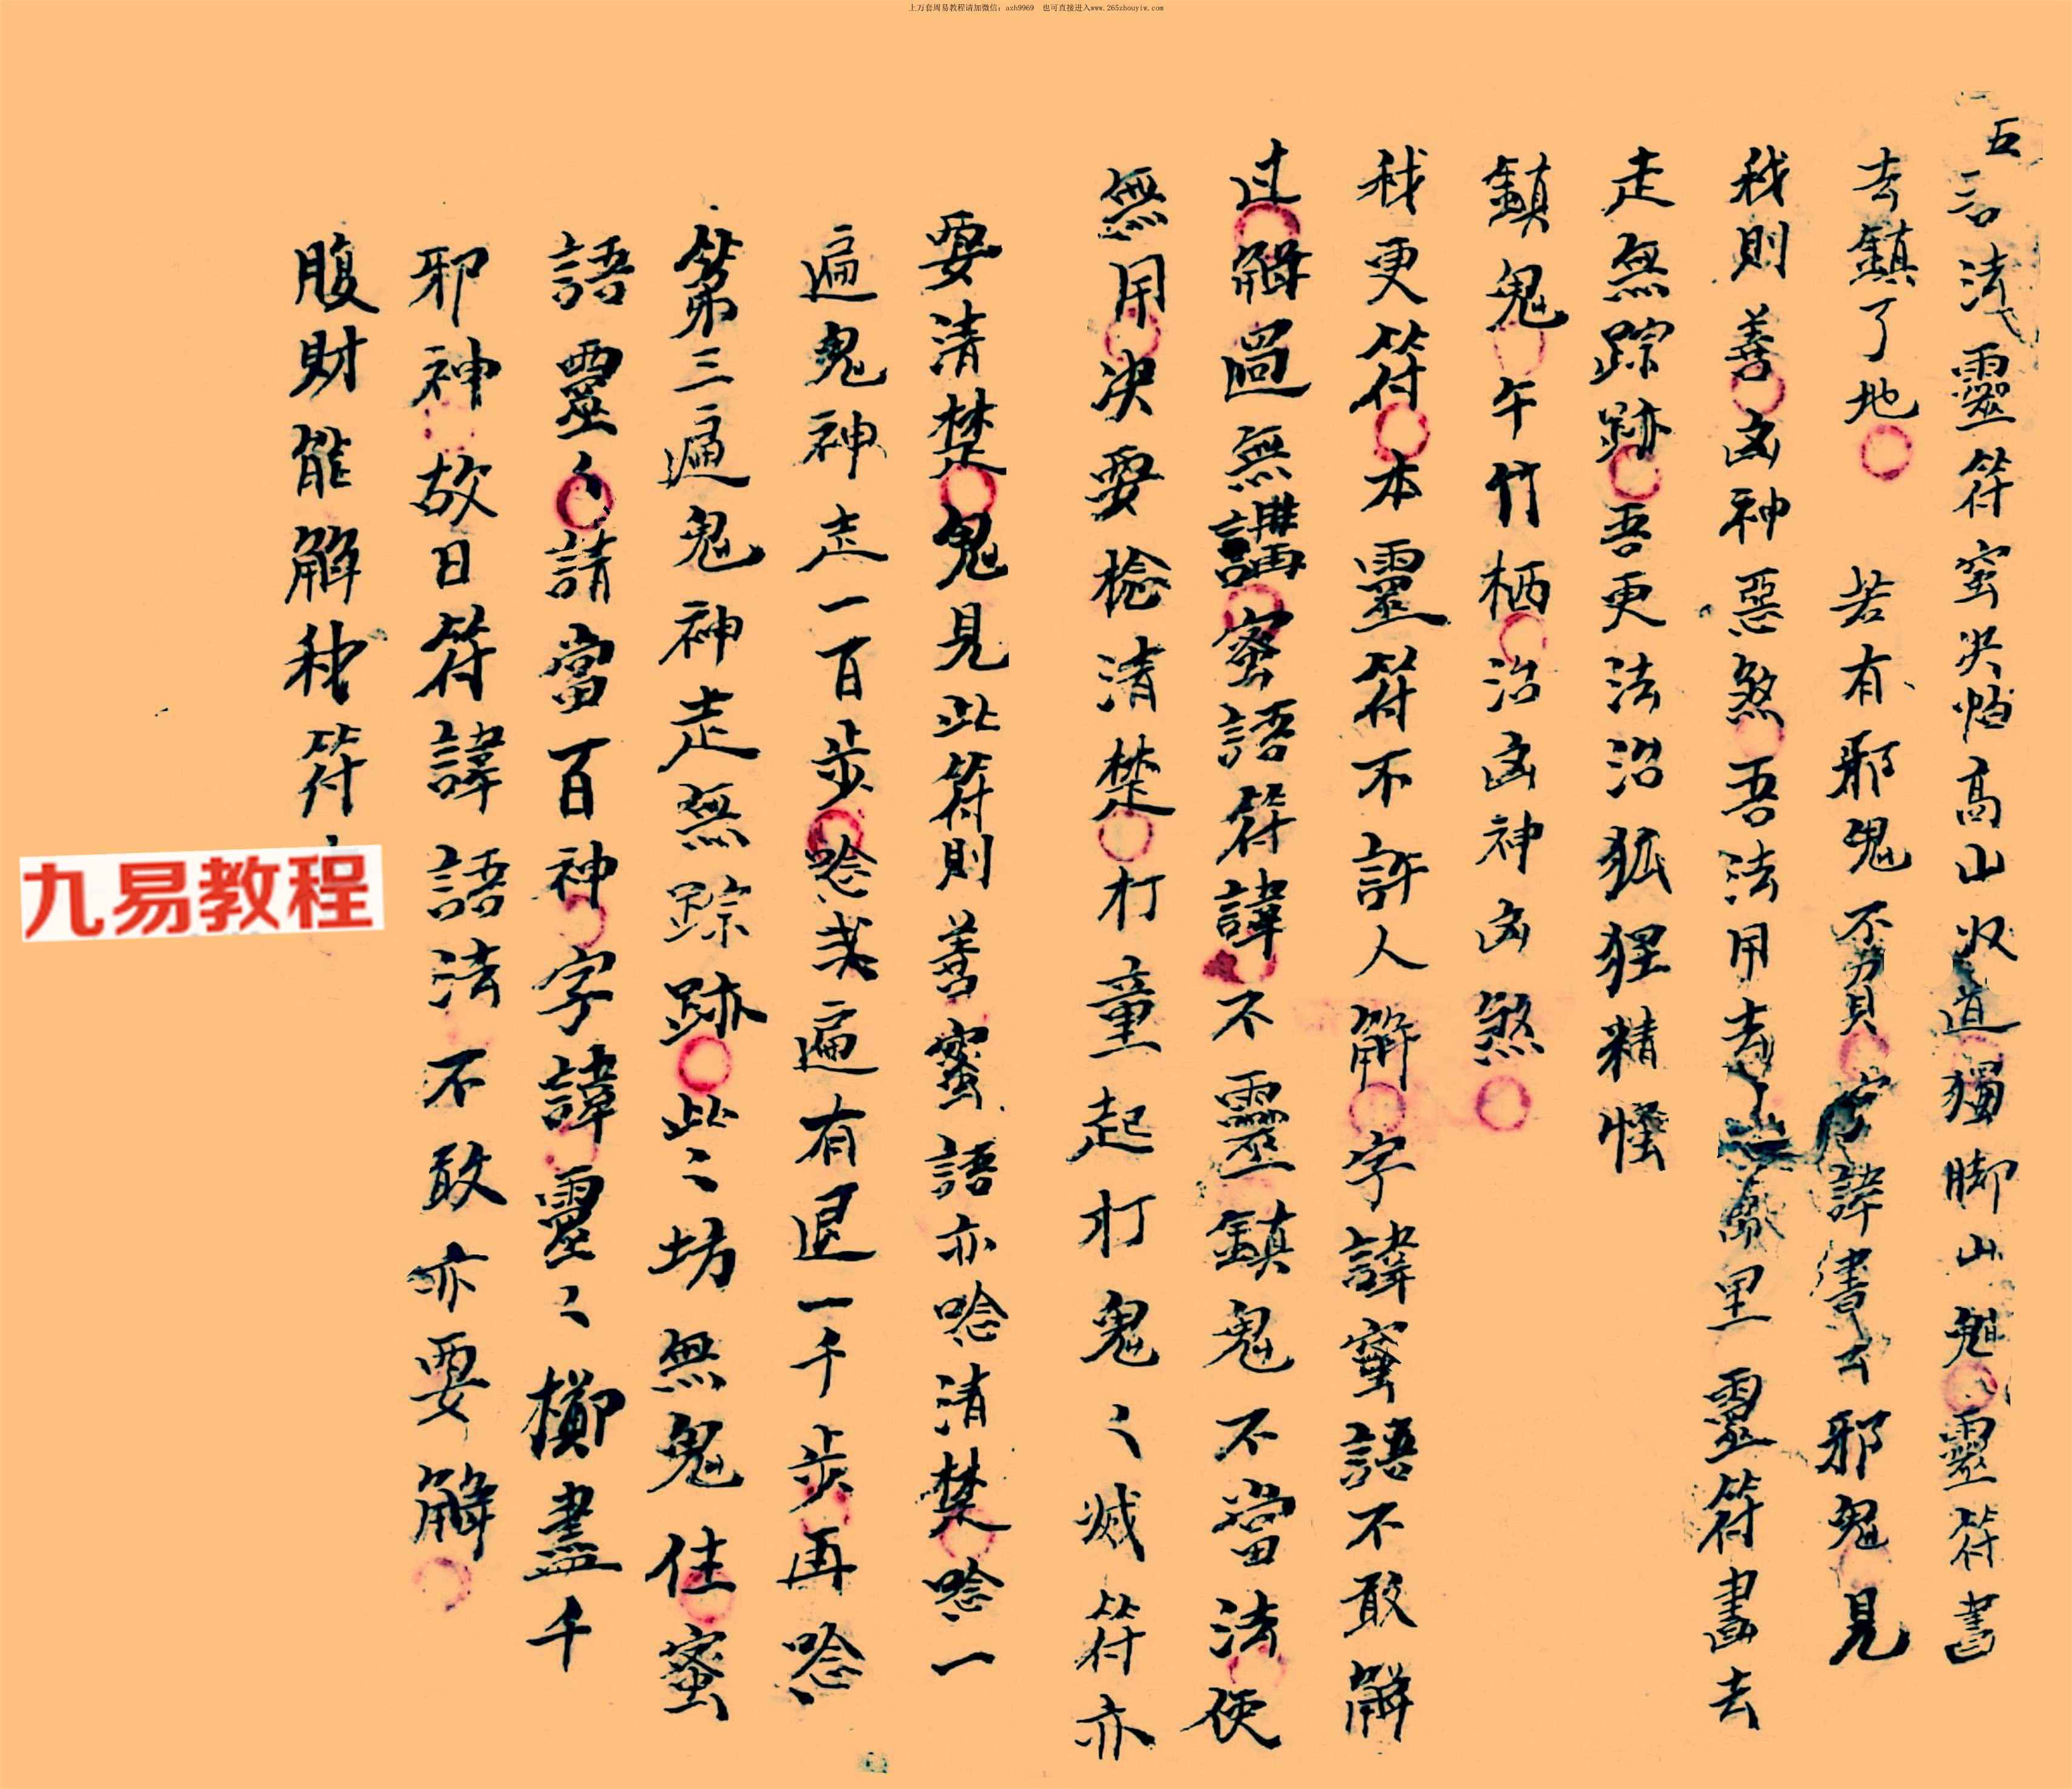 上万套周易教程请加微信：azh9969 也可直接进入www.265zhouyiw.com
五言法靈符蜜决怕高山收道獨脚山魈靈符書
去鎮了地若有邪鬼不買字諱書去邪鬼見
我則善凶神惡煞吾法用去萬里靈符畫去
走無踪跡吾更法治狐狸精怪
鎮鬼午竹栖治凶神凶煞
我更符本靈符不許人解字諱蜜語不敢解
过解過無講蜜語符諱不靈鎮鬼不當法使
無用决要棯清楚打童起打打鬼〻滅符亦
要清楚鬼見此符則善蜜語亦唸清楚唸一
遍鬼神走一百步唸弍遍有退一千步再唸
第三遍鬼神走無踪跡此〻坊無鬼住蜜
語靈〻請當百神字諱靈〻擲盡千
邪神故日符諱語法不敢亦要解
腹財能解我符
九易教程